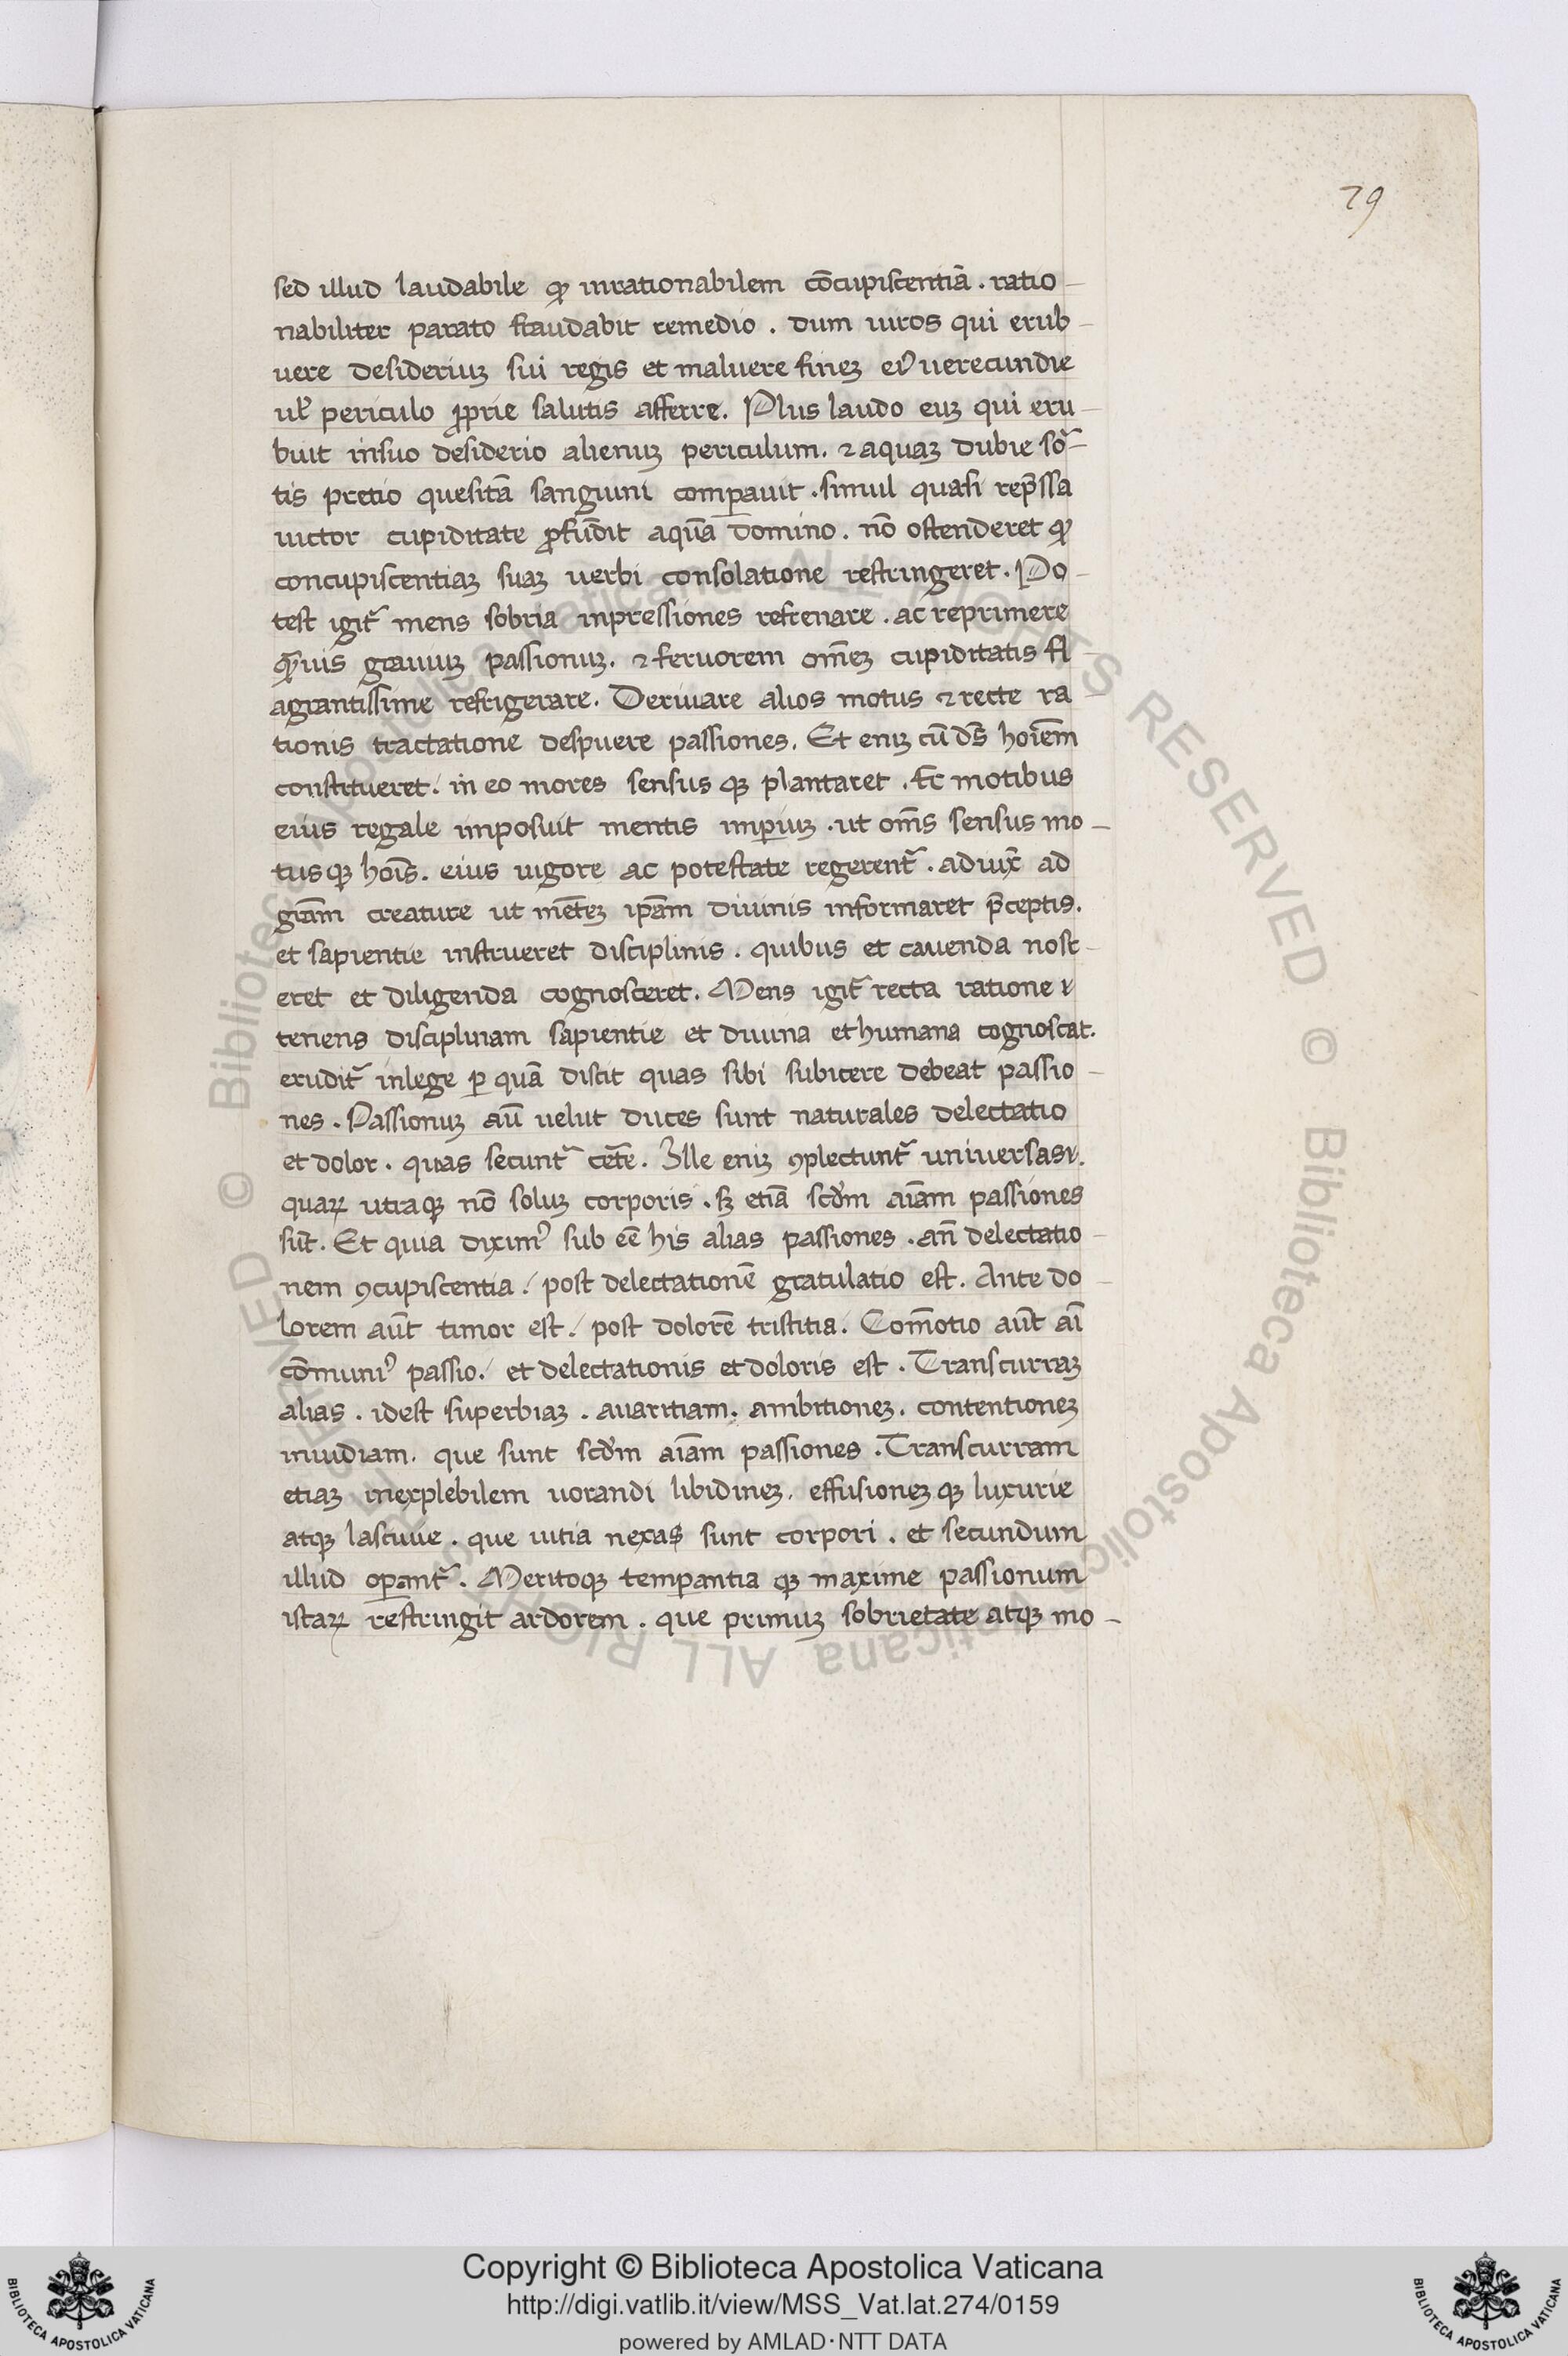 79
sed illud laudabile ꝙ inrationabilem cōcupiscentiā . ratio-
nabiliter parato fraudabit remedio . dum uiros qui erub-
uere desideriuꝫ sui regis et maluere fineꝫ eiꝰ uerecundie
ul̓ periculo ꝓprie salutis afferre. Plus laudo euꝫ qui eru-
buit insuo desiderio alienuꝫ periculum. ⁊ aquaꝫ dubie so᷑-
tis pretio quesitā sanguini comꝑauit . simul quasi rep̄ssa
uictor cupiditate ꝓfūdit aquā domino . nō ostenderet ꝙ
concupiscentiaꝫ suaꝫ uerbi consolatione restringeret. Po-
test igit᷑ mens sobria inpressiones refrenare . ac reprimere
qͣ̄uis grauiuꝫ passionuꝫ. ⁊ feruorem om̄eꝫ cupiditatis fl-
agrantissime refrigerare. Deriuare alios motus ⁊ recte ra-
tionis tractatione despuere passiones. Et eniꝫ cū ds̄ hoīem
constitueret / in eo mores sensus qꝫ plantaret . Et motibus
eius regale imposuit mentis imꝑiuꝫ . ut om̄s sensus mo-
tus qꝫ hoīs. eius uigore ac potestate regerent᷑ . adiux̄ ad
grām creature ut mēteꝫ ip̄am diuinis informaret p̄ceptis.
et sapientie instrueret disciplinis . quibus et cauenda nosc-
eret et diligenda cognosceret. Mens igit᷑ recta ratione
tenens disciplinam sapientie et diuina et humana cognoscat.
erudit᷑ inlege ꝑ quā discit quas sibi subicere debeat passio-
nes . Passionuꝫ aū uelut duces sunt naturales delectatio
et dolor . quas secunt᷑ cet̄e. Ille eniꝫ ꝯplectunt᷑ uniuersas.
quaꝝ utraqꝫ nō soluꝫ corporis . sꝫ etiā scd̄m aīam passiones
sūt. Et quia diximꝰ sub eē his alias passiones . an̄ delectatio-
nem ꝯcupiscentia / post delectationē gratulatio est. Ante do-
lorem aūt timor est / post dolorē tristitia. Com̄otio aūt aī
cōmuniꝰ passio / et delectationis et doloris est . Transcurraꝫ
alias . idest superbiaꝫ . auaritiam. ambitioneꝫ. contentioneꝫ
inuidiam. que sunt scd̄m aīam passiones . Transcurram
etiaꝫ inexplebilem uorandi libidineꝫ. effusioneꝫ qꝫ luxurie
atqꝫ lasciuie . que uitia nexas sunt corpori . et secundum
illud oꝑant᷑. Meritoqꝫ temꝑantia qꝫ maxime passionum
istaꝝ restringit ardorem . que primuꝫ sobrietate atqꝫ mo-
Copyright © Biblioteca Apostolica Vaticana
http://digi.vatlib.it/view/MSS_Vat.lat.274/0159
powered by AMLAD·NTT DATA
BIBLIOTECA APOSTOLICA VATICANA
BIBLIOTECA APOSTOLICA VATICANA
© Biblioteca Apostolica Vaticana ALL RIGHTS RESERVED © Biblioteca Apostolica Vaticana ALL RIGHTS RESERVED